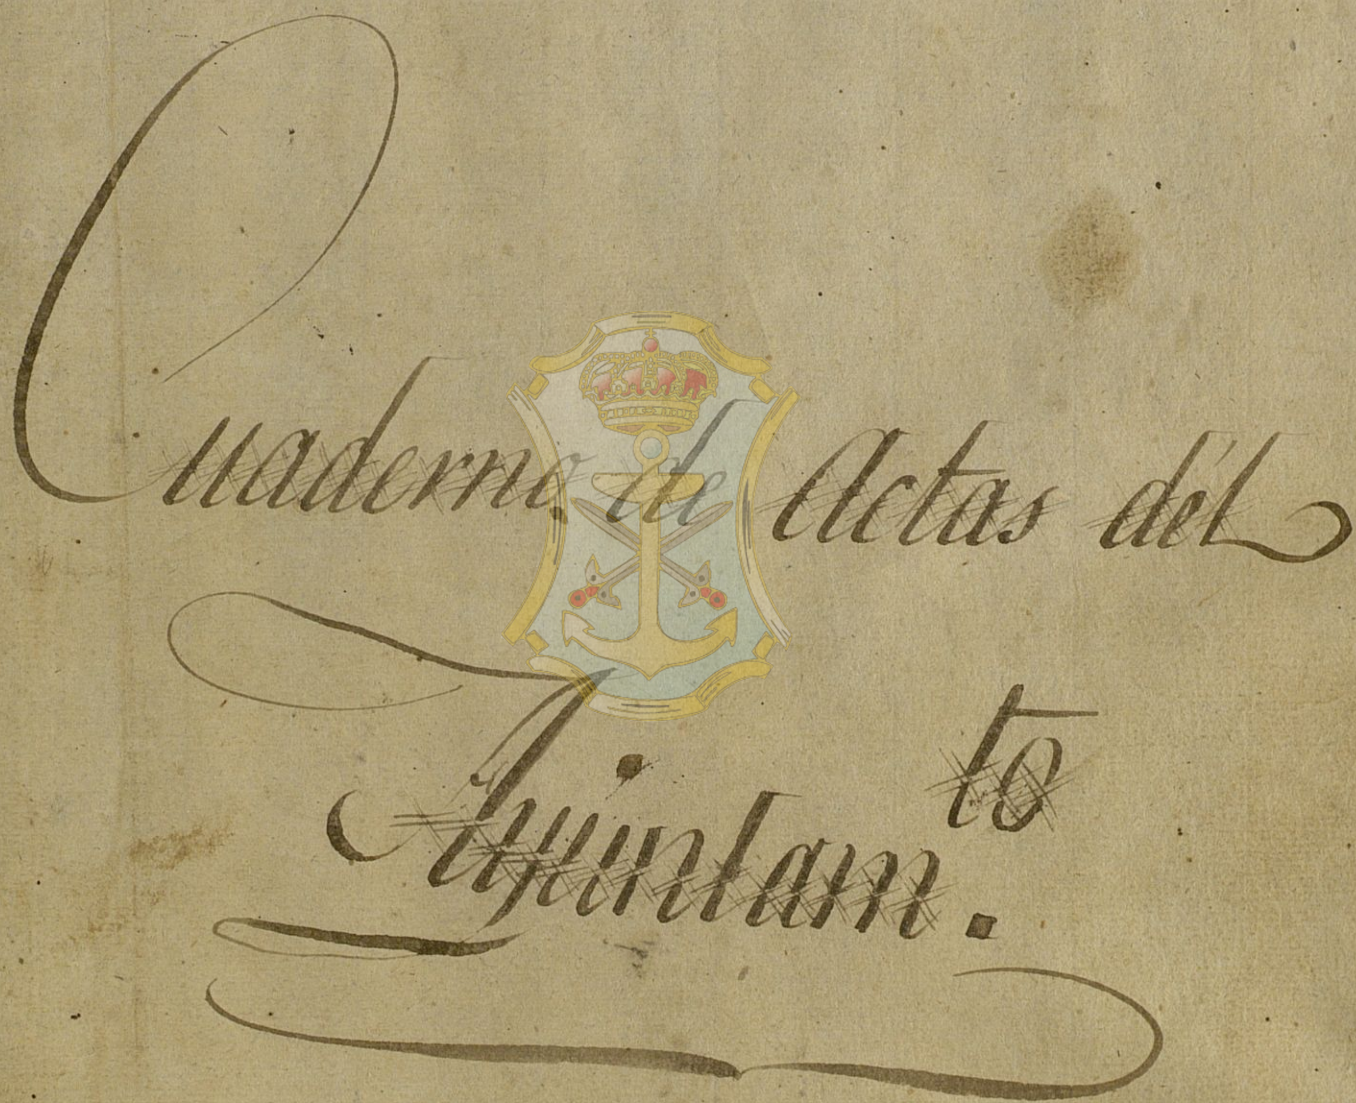 Cuaderno. de Actas del
Ayuntam.to